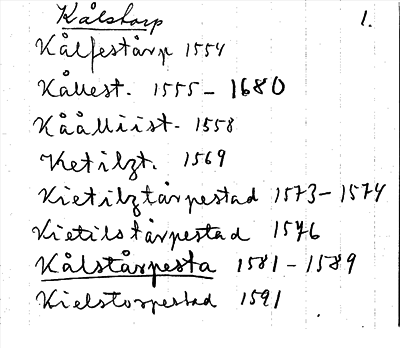 Kålstorp 1.
Kålfestårp 1554
Kållest. 1555-1680
Kåålliist. 1558
Ketilzt. 1569
Kietilztårpestad 1573-1574
Kietilstårpestad 1576
Kålstårpesta 1581-1589
Kielstorpestad 1591